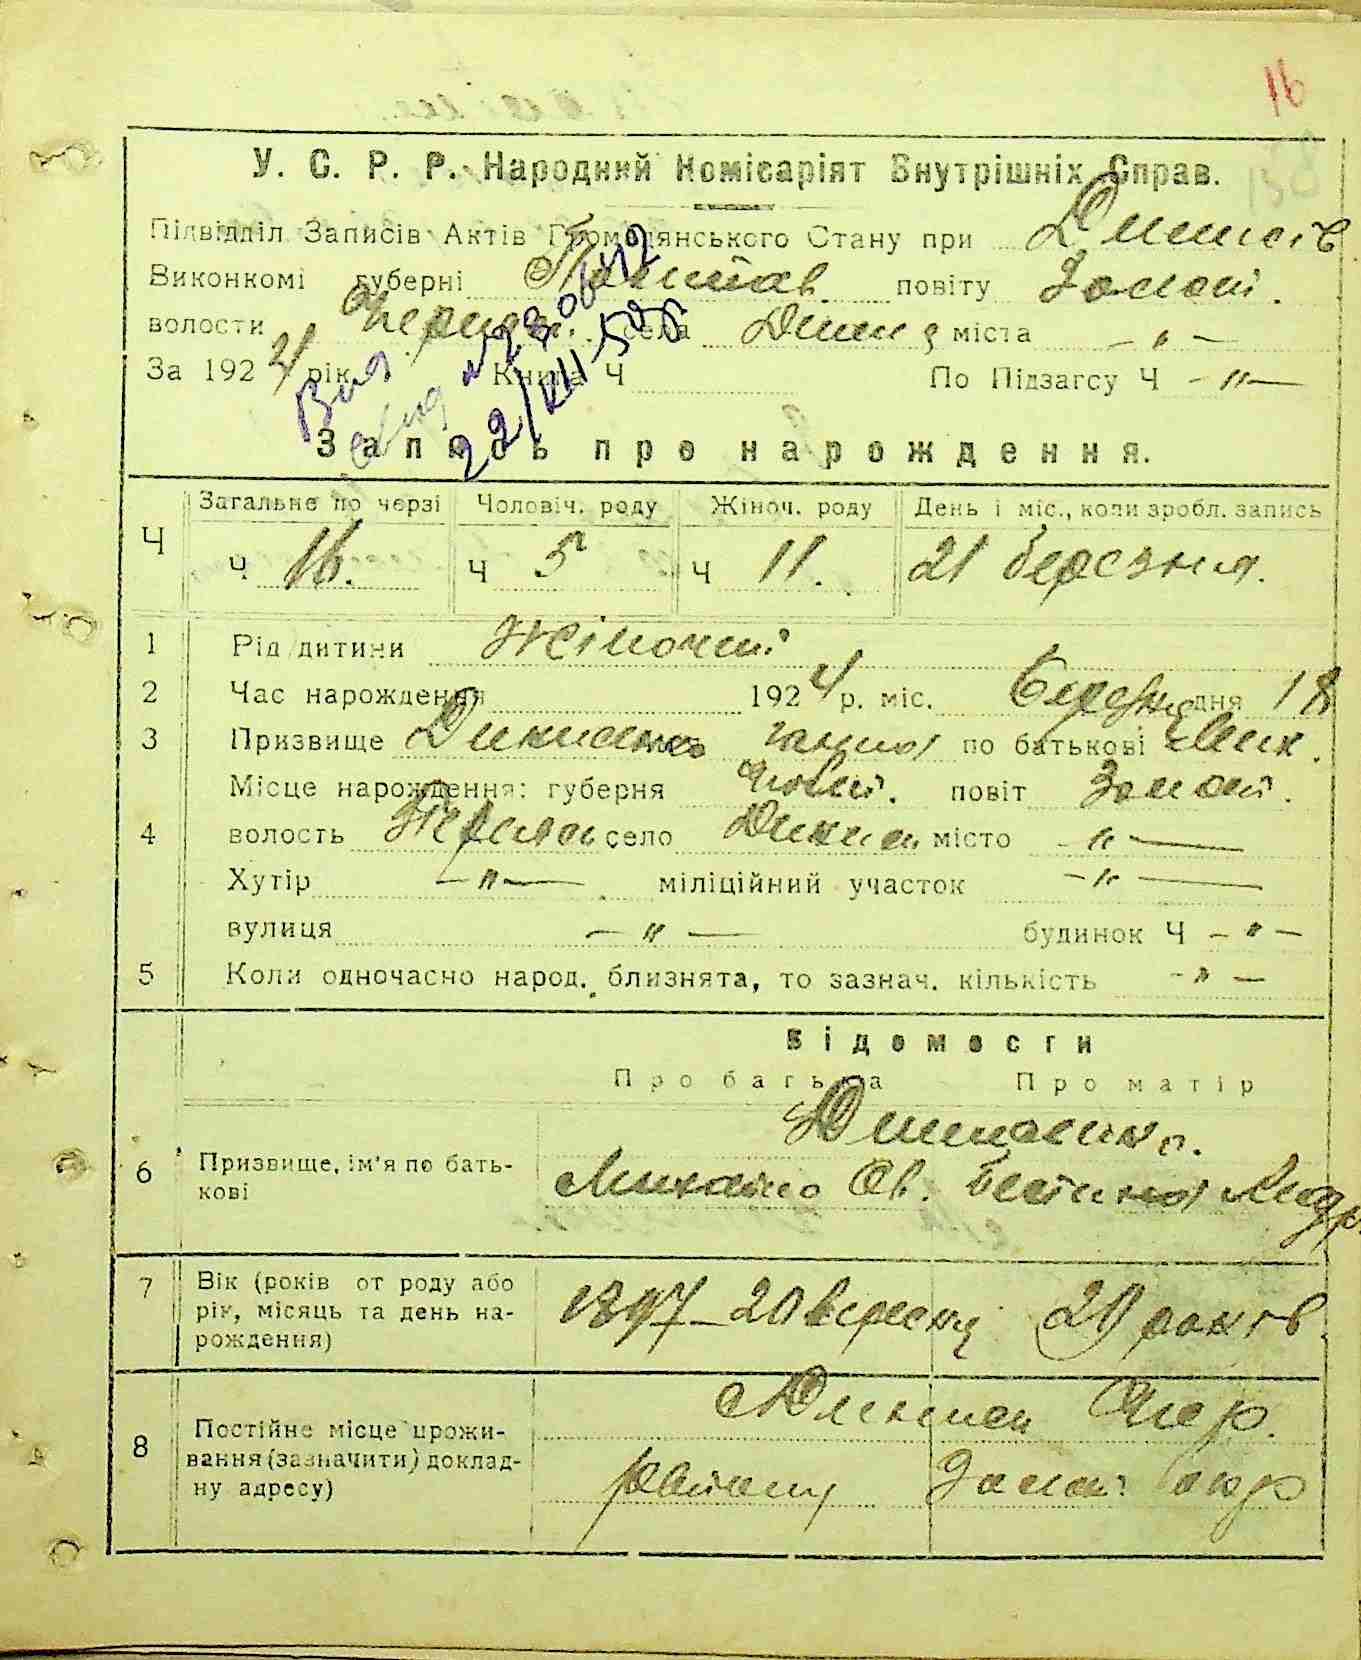 16
У. С. Р. Р. Народний Комісаріят Внутрішніх Справ.
Підвідділ Записів Актів Громадянського Стану при
Виконкомі губерні Полтав. повіту Золот.
волости села міста – „ –
За 1924 рік Книга Ч По Підзагсу Ч – „ –
22/XII-50
Запись про народження.
Ч Загальне по черзі Чоловіч. роду Жіноч. роду День і міс., коли зробл. запись
Ч 16. Ч 5 Ч 11. 21 березня.
1 Рід дитини Жіночий
2 Час народження 1924 р. міс. березня дня 18
3 Призвище Ганна по батькові Мих.
Місце народження: губерня Полт. повіт Золот.
4 волость село місто – „ –
Хутір – „ – міліційний участок – „ –
вулиця – „ – будинок Ч – „ –
5 Коли одночасно народ. близнята, то зазнач. кількість – „ –
Відомости
Про батька Про матір
6 Призвище, ім'я по бать-
кові Михайло
7 Вік (років от роду або
рік, місяць та день на-
родження) 1897 – 20 вересня 20 років.
8 Постійне місце прожи-
вання (зазначити) доклад-
ну адресу) району Золот. окр